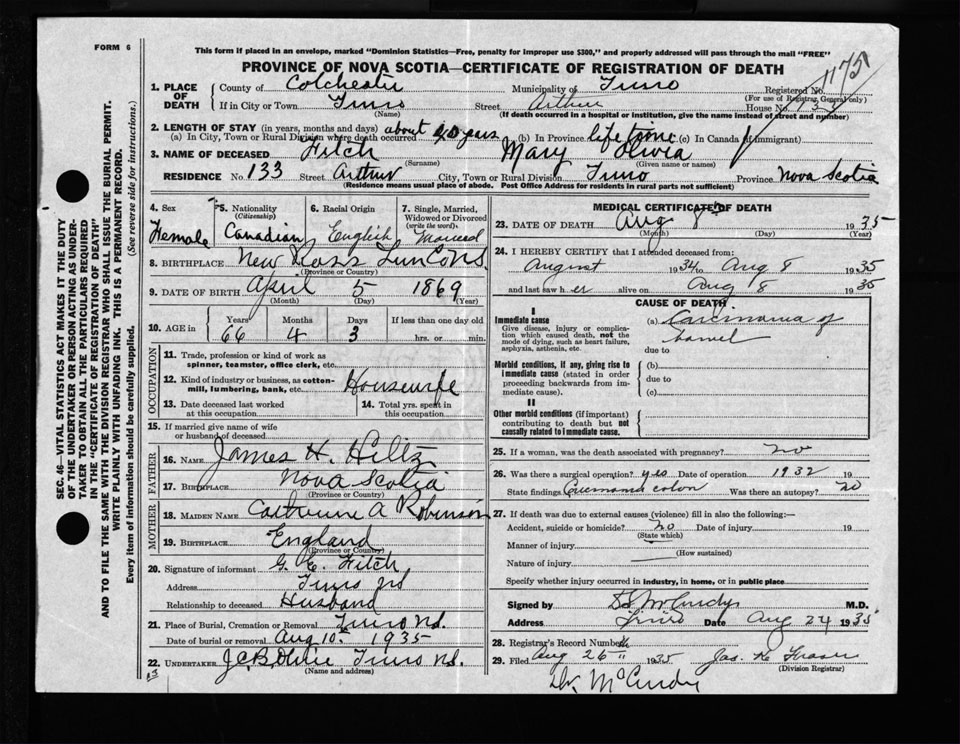 FORM 6
This form if placed in an envelope, marked "Dominion Statistics—Free, penalty for improper use $300," and properly addressed will pass through the mail "FREE"
PROVINCE OF NOVA SCOTIA—CERTIFICATE OF REGISTRATION OF DEATH
1175
1. PLACE OF DEATH County of Colchester Municipality of Truro Registered No.
(For use of Registrar General only)
If in City or Town Truro Street Arthur House No. 133
(Name) (If death occurred in a hospital or institution, give the name instead of street and number)
2. LENGTH OF STAY (in years, months and days)
(a) In City, Town or Rural Division where death occurred about 40 yrs (b) In Province lifetime (c) In Canada (if immigrant)
3. NAME OF DECEASED Fitch Mary Olivia
(Surname) (Given name or names)
RESIDENCE No. 133 Street Arthur City, Town or Rural Division Truro Province Nova Scotia
(Residence means usual place of abode. Post Office Address for residents in rural parts not sufficient)
4. Sex Female
5. Nationality (Citizenship) Canadian
6. Racial Origin English
7. Single, Married, Widowed or Divorced (write the word) Married
8. BIRTHPLACE New Ross Lun Co NS.
(Province or Country)
9. DATE OF BIRTH April 5 1869
(Month) (Day) (Year)
10. AGE in Years Months Days If less than one day old
66 4 3 hrs. or min.
OCCUPATION
11. Trade, profession or kind of work as spinner, teamster, office clerk, etc.
12. Kind of industry or business, as cotton-mill, lumbering, bank, etc. Housewife
13. Date deceased last worked at this occupation
14. Total yrs. spent in this occupation
15. If married give name of wife or husband of deceased
FATHER
16. Name James H. Hiltz
17. Birthplace Nova Scotia
(Province or Country)
MOTHER
18. Maiden Name Catherine A Robinson
19. Birthplace England
(Province or Country)
20. Signature of informant G. E. Fitch
Address Truro NS
Relationship to deceased Husband
21. Place of Burial, Cremation or Removal Truro NS.
Date of burial or removal Aug 10th 1935
22. UNDERTAKER Truro NS.
(Name and address)
MEDICAL CERTIFICATE OF DEATH
23. DATE OF DEATH Aug 8th 1935
(Month) (Day) (Year)
24. I HEREBY CERTIFY that I attended deceased from:
August 1934 to Aug 8 1935
and last saw her alive on Aug 8 1935
CAUSE OF DEATH
I
Immediate cause
Give disease, injury or complication which caused death, not the mode of dying, such as heart failure, asphyxia, asthenia, etc.
(a) Carcinoma of bowel
due to
Morbid conditions, if any, giving rise to immediate cause (stated in order proceeding backwards from immediate cause).
(b)
due to
(c)
II
Other morbid conditions (if important) contributing to death but not causally related to immediate cause.
25. If a woman, was the death associated with pregnancy? no
26. Was there a surgical operation? yes Date of operation 1932 19
State findings colon Was there an autopsy? no
27. If death was due to external causes (violence) fill in also the following:—
Accident, suicide or homicide? no Date of injury 19
(State which)
Manner of injury
(How sustained)
Nature of injury
Specify whether injury occurred in industry, in home, or in public place
Signed by McCurdy M.D.
Address Truro Date Aug 24 1935
28. Registrar's Record Number
29. Filed Aug 26 1935 Jas. H. Fraser
(Division Registrar)
Dr. McCurdy
SEC. 46—VITAL STATISTICS ACT MAKES IT THE DUTY
OF THE UNDERTAKER OR PERSON ACTING AS UNDER-
TAKER TO OBTAIN ALL THE PARTICULARS REQUIRED
IN THE "CERTIFICATE OF REGISTRATION OF DEATH"
AND TO FILE THE SAME WITH THE DIVISION REGISTRAR WHO SHALL ISSUE THE BURIAL PERMIT.
WRITE PLAINLY WITH UNFADING INK. THIS IS A PERMANENT RECORD.
Every item of information should be carefully supplied. (See reverse side for instructions.)